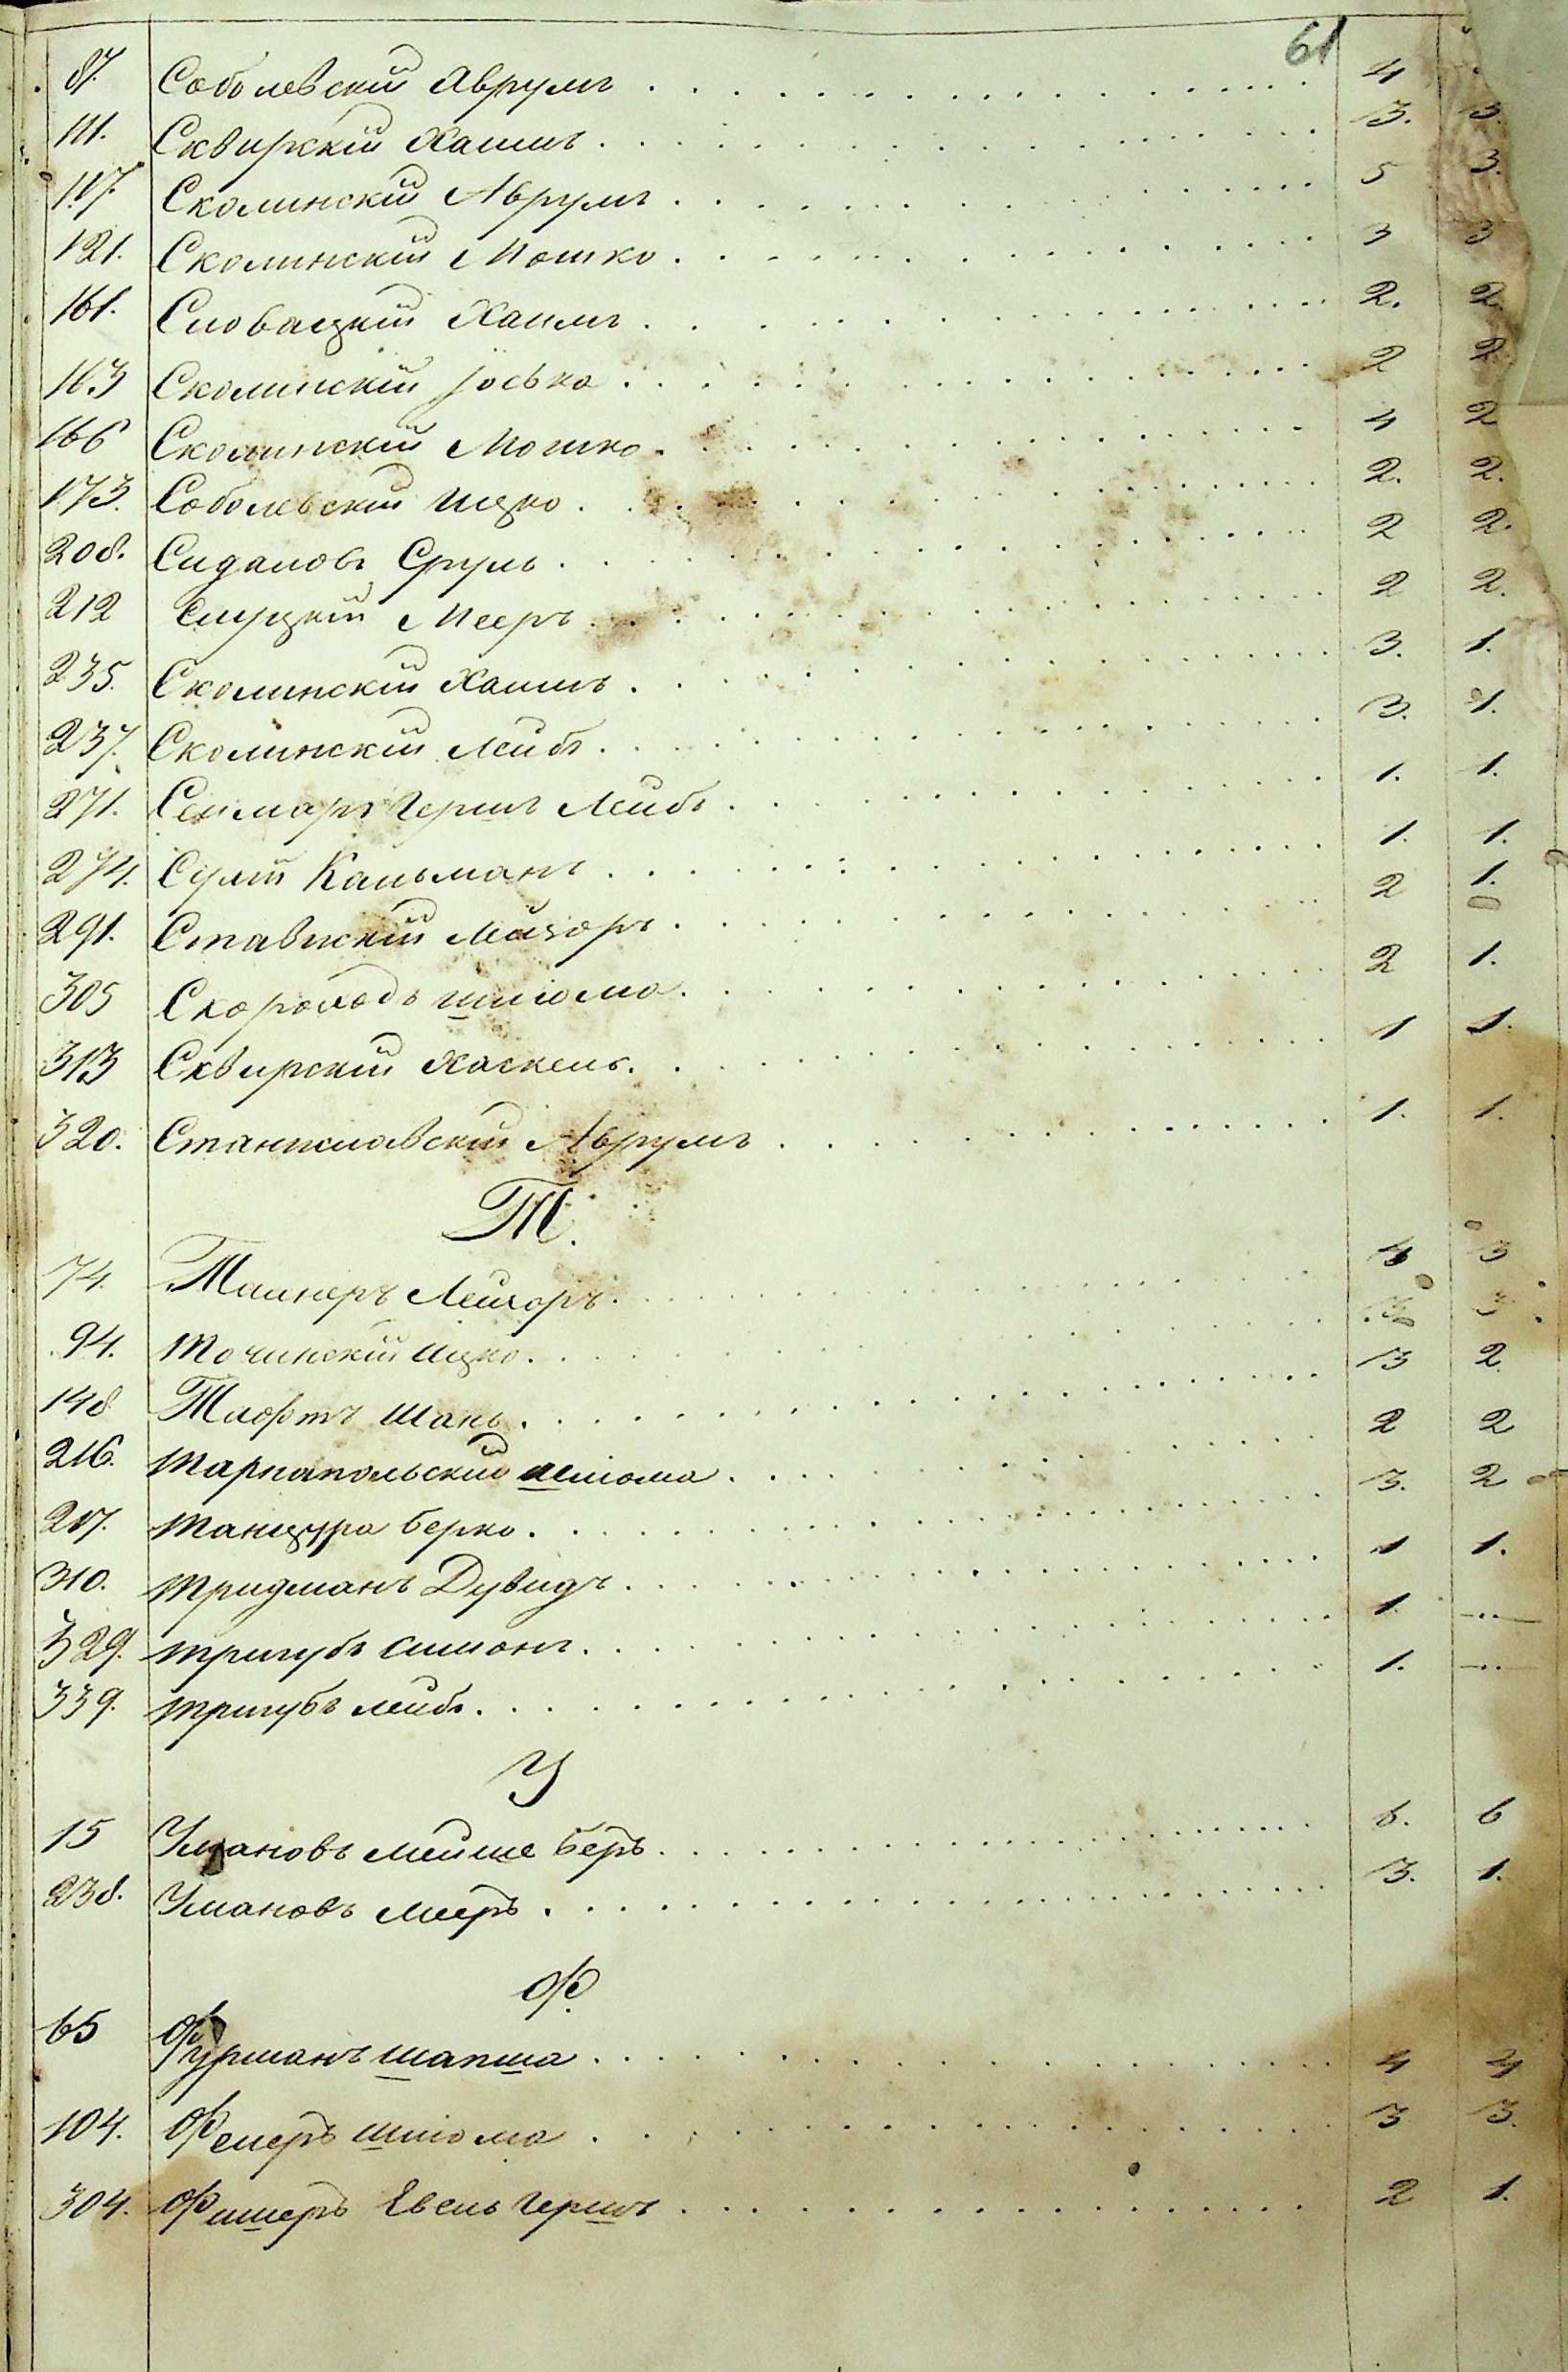 61
87. Соболевскій Аврумъ 4
111. Сквирскій Хаимъ 3. 3.
117. Сколинскій Аврумъ 5 3.
121. Сколинскій Мошко 3 3
161. Словацкій Хаимъ 2. 2.
163 Сколинскій Іосько 2 2
166 Сколинскій Мошко 4 2
173. Соболевскій Ицко 2. 2.
208. Сидаловъ Сруль 2 2.
212 Слуцкій Мееръ 2 2.
235. Сколинскій Хаимъ 3. 1.
237. Сколинскій Лейбъ 3. 1.
271. Гершъ Лейбъ 1. 1.
274. Кальманъ 1. 1.
291. Ставискій Лейзоръ 2 1.
305 Скороходъ Шлюома 2 1.
313 Сквирскій Хаскель 1 1.
320. Станиславскій Аврумъ 1. 1.
Т.
74. Талнеръ Лейзоръ 4 3
94. Точинскій Ицко 3. 3
148 Шань 3 2
216. Тарнапольскій Шлюома 2 2
217. Танцура Берко 3. 2
310. Тридманъ Дувидъ 1 1.
329. Тригубъ Симонъ 1. -..-
339. Тригубъ Лейбъ 1. -..-
У
15 Умановъ Мейше Беръ 6. 6
238. Умановъ Мееръ 3. 1.
Ф.
65 Фурманъ Шапша 4 4
104. Фелеръ Шлюома 3 3.
304. Фишеръ Евель Гершъ 2 1.